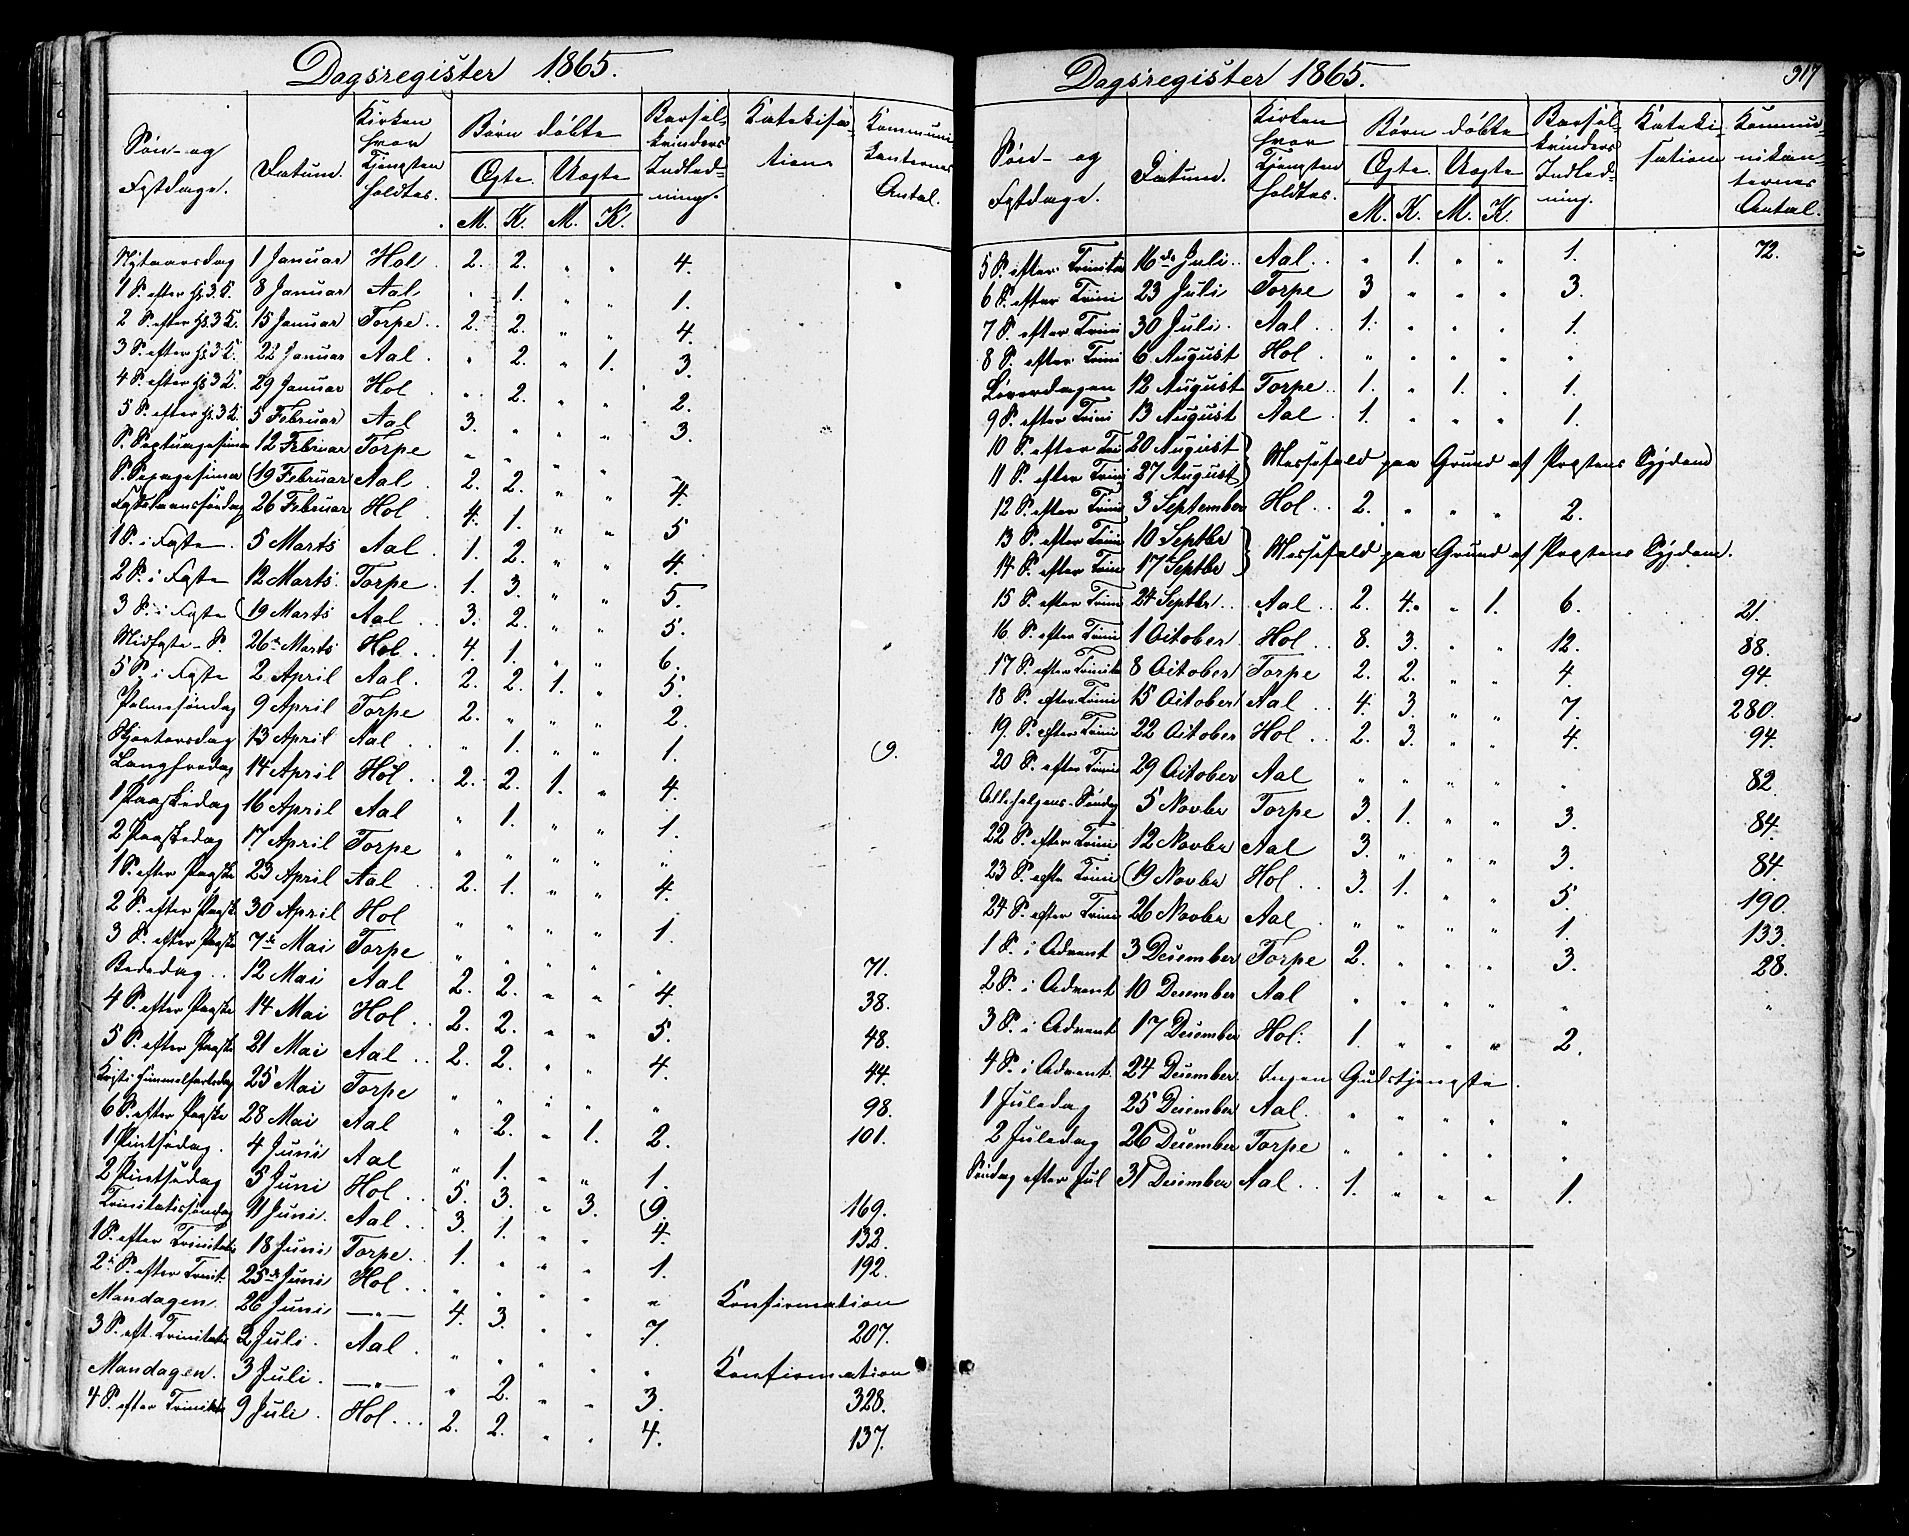 Dagsregister 1865.
Søn- og Festdage. | Datum. | Kirken hvor Tjenesten holdtes. | Børn døbte Ægte. M. K. Uægte M. K. | Barselkvinders Indledning. | Katekisation | Kommunikanternes Antal.
Nytaarsdag 1 Januar Hol 2. 2. " " 4.
1 S. efter H. 3 K. 8 Januar Aal " 1. " " 1.
2 S. efter H. 3 K. 15 Januar Torpe 2. 2. " " 4.
3 S. efter H. 3 K. 22 Januar Aal " 2. " 1. 3.
4 S. efter H. 3 K. 29 Januar Hol " 2. " " 2.
5 S. efter H. 3 K. 5 Februar Aal 3. " " " 3.
S. Septuagesima 12 Februar Torpe " " " " "
S. Sexagesima 19 Februar Aal 2. 2. " " 4.
Fastelavnssøndag 26 Februar Hol 4. 1. " " 5
1 S. i Faste 5 Marts Aal 1. 2. " " 4.
2 S. i Faste 12 Marts Torpe 1. 3. " " 5.
3 S. i Faste 19 Marts Aal 3. 2. " " 5.
Midfaste-S. 26de Marts Hol 4. 1. " " 6.
5 S. i Faste 2 April Aal 2. 2. 1. " 5.
Palmesøndag 9 April Torpe 2. " " " 2.
Skjertorsdag 13 April Aal " 1. " " 1. 9.
Langfredag 14 April Hol 2. 2. 1. " 4.
1 Paaskedag 16 April Aal " 1. " " 1.
2 Paaskedag 17 April Torpe " " " " "
1 S. efter Paaske 23 April Aal 2. 1. " " 4.
2 S. efter Paaske 30 April Hol " " " " 1.
3 S. efter Paaske 7de Mai Torpe " " " " " 71.
Bededag 12 Mai Aal 2. 2. " " 4. 38.
4 S. efter Paaske 14 Mai Hol 2. 2. " " 5. 48.
5 S. efter Paaske 21 Mai Aal 2. 2. " " 4. 44.
Kristi Himmelfartsdag 25 Mai Torpe " " " " " 98.
6 S. efter Paaske 28 Mai Aal " 2. " 1. 2. 101.
1 Pintsedag 4 Juni Aal " 1. " " 1.
2 Pintsedag 5 Juni Hol 5. 3. " 3. 9. 169.
Trinitatissøndag 11 Juni. Aal 3. 1. " " 4. 132.
1 S. efter Trinitatis 18 Juni Torpe 1. " " " 1. 192.
2. S. efter Trinit. 25de Juni Hol " " " " " Konfirmation
Mandagen. 26 Juni " 4. 3. " " 7. 207.
3 S. eft. Trinitatis 2 Juli. Aal " " " " " Konfirmation
Mandagen. 3 Juli. " " 2. " " 3. 328.
4 S. efter Trinitat 9 Juli. Hol 2. 2. " " 4. 137.
Dagsregister 1865. 317
Søn- og Festdage. | Datum. | Kirken hvor Tjenesten holdtes. | Børn døbte Ægte. M. K. Uægte M. K. | Barselkvinders Indledning. | Katekisation | Kommunikanternes Antal.
5 S. efter Trinita 16de Juli Aal " 1. " " 1. 72.
6 S. efter Trini 23 Juli Torpe 3 " " " 3.
7 S. efter Trini 30 Juli. Aal 1. " " " 1.
8 S. efter Trini 6 August Hol " " " " "
Løverdagen 12 August Torpe 1. " 1. " 1.
9 S. efter Trini 13 August Aal 1. " " " 1.
10 S. efter Tri 20 August
11 S. efter Trini 27 August } Messefald paa Grund af Prestens Sygdom
12 S. efter Trini 3 September Hol 2. " " " 2.
13 S. efter Trini 10 Septbr
14 S. efter Trini 17 Septbr } Messefald paa Grund af Prestens Sygdom.
15 S. efter Trini 24 Septbr Aal 2. 4. " 1. 6. 21.
16 S. efter Trini 1 October Hol 8. 3. " " 12. 88.
17 S. efter Trinita 8 October Torpe 2. 2. " " 4 94.
18 S. efter Trini 15 October Aal 4. 3. " " 7. 280.
19. S. efter Trini 22 October Hol 2. 3. " " 4. 94.
20 S. efter Trini 29 October Aal " " " " " 82.
Allehelgens-Søndag 5 Novbr Torpe 3. 1. " " 3. 84.
22 S. efter Trini 12 Novbr Aal 3. " " " 3. 84.
23 S. efte Trini 19 Novbr Hol 3. 1. " " 5. 190.
24 S. efter Trini 26 Novbr Aal " " " " 1. 133.
1 S. i Advent 3 December Torpe 2. " " " 3. 28.
2 S. i Advent 10 December Aal " " " " " "
3 S. i Advent 17 December Hol. 1. " " " 2.
4 S. i Advent 24 December Ingen Gudstjeneste.
1 Juledag 25 December Aal. " " " " "
2 Juledag 26 December Torpe " " " " "
Søndag efter Jul 31 December Aal 1. " " " 1.